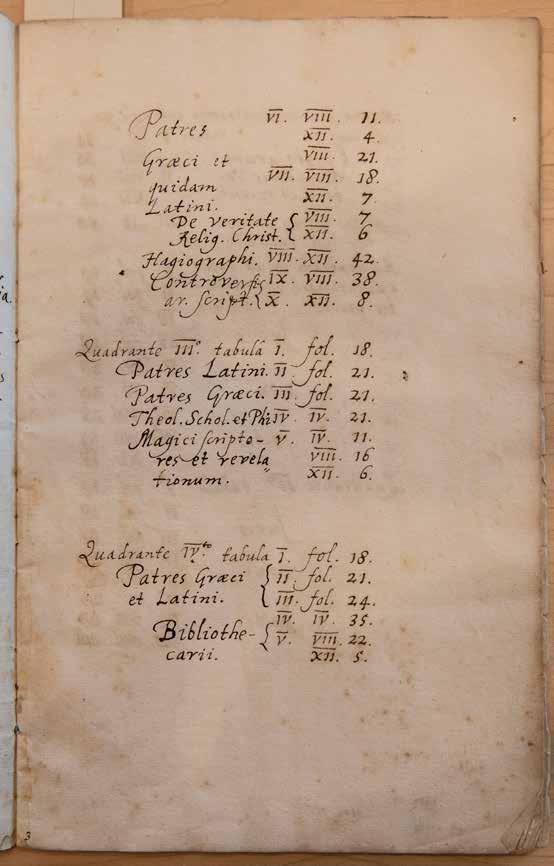 Patres VI. VIII. 11.
XII. 4.
Græci et VIII. 21.
quidam VII. VIII. 18.
Latini. XII. 7.
De veritate { VIII. 7
Relig. Christ. { XII. 6
Hagiographi. VIII. XII. 42.
Controversi IX. VIII. 38
ar. script. { X. XII. 8.
Quadrante III.º tabula I. fol. 18.
Patres Latini. II. fol. 21.
Patres Græci. III. fol. 21.
Theol. Schol. et Phi IV. IV. 21.
Magici scripto- V. IV. 11.
res et revela VIII. 16
tionum. XII. 6.
Quadrante IV.to tabula I. fol. 18.
Patres Græci { II. fol. 21.
et Latini. { III. fol. 24.
IV. IV. 35.
Bibliothe- { V. VIII. 22.
carii. XII. 5.
3